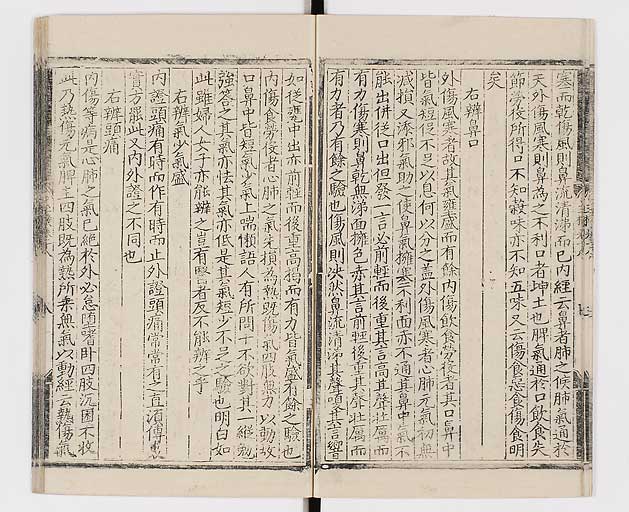 塞而乾傷風則鼻流清涕而已內經云鼻者肺之候肺氣通於
天外傷風寒則鼻為之不利口者坤土也脾氣通於口飲食失
節勞役所得口不知穀味亦不知五味又云傷食惡食傷食明
矣
右辨鼻口
外傷風寒者故其氣壅盛而有餘內傷飲食勞役者其口鼻中
皆氣短促不足以息何以分之盖外傷風寒者心肺元氣初無
減損又添邪氣助之使鼻氣擁塞不利面亦不通其鼻中氣不
能出併從口出但發一言必前輕而後重其言高其聲壯厲而
有力傷寒則鼻乾無涕面擁色赤其言前輕後重其聲壯厲而
有力者乃有餘之驗也傷風則決然鼻流清涕其聲嗄其言響
如從甕中出亦前輕而後重高揭而有力皆氣盛有餘之驗也
內傷食勞役者心肺之氣先損為熱既傷氣四肢無力以動故
口鼻中皆短氣少氣上喘懶語人有所問十不欲對其一縱勉
強答之其氣亦怯其氣亦低是其氣短少不足之驗也明白如
此雖婦人女子亦能辨之豈有醫者反不能辨之乎
右辨氣少氣盛
內證頭痛有時而作有時而止外證頭痛常常有之直須傳裏
實方罷此又內外證之不同也
右辨頭痛
內傷等病是心肺之氣已絕於外必怠墮嗜卧四肢沉困不收
此乃熱傷元氣脾主四肢既為熱所乘無氣以動經云熱傷氣